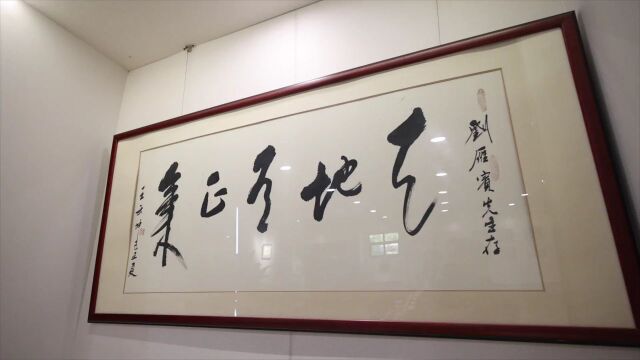 劉雁賓先生存
天地有正氣